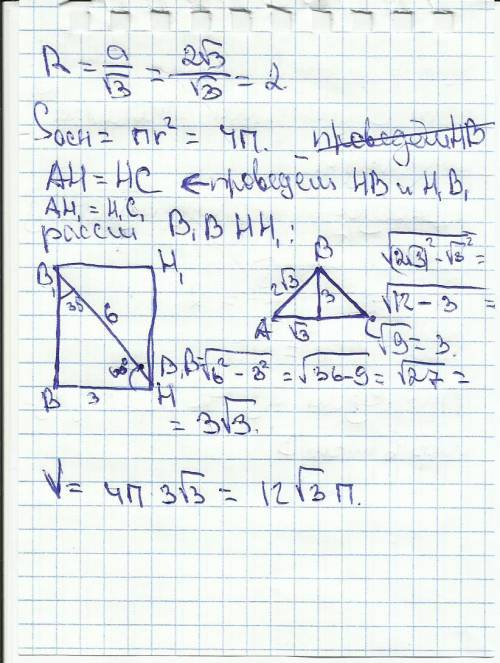 R = a/√3 = 2√3/√3 = 2
Sосн = πr² = 4π. проведём HB
AH = HC ← проведём HB и H₁B₁
A₁H₁ = H₁C₁
рассм B₁BHH₁:
B₁ H₁
30 6
60°
B 3 H
B
2√3 3
A √3 C
√(2√3)² - √3² =
√12 - 3 =
√9 = 3.
B₁B = √6² - 3² = √36 - 9 = √27 =
= 3√3.
V = 4π 3√3 = 12√3 π.